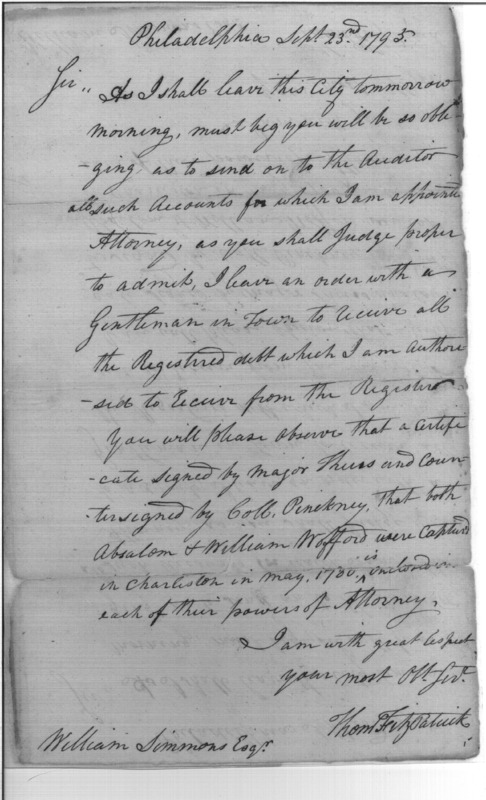 Philadelphia Sept 23.rd 1795.
Sir,, As I shall leave this City tommorrow
morning, must beg you will be so obli
-ging as to send on to the Auditor
all such Accounts for which I am appointed
Attorney, as you shall Judge proper
to admit, I leave an order with a
Gentleman in Town to receive all
the Registered debt which I am authore
-sed to receive from the Register
You will please observe that a Certifi
-cate signed by Major and Coun-
-tersigned by Coll. Pinckney, that both
Absalem & William Wofford were Captured
in Charleston in may, 1780, is enclosed in
each of their powers of Attorney,
I am with great respect
your most Obt. Servt.
Thom. Fitzpatrick
William Simmons Esqr.